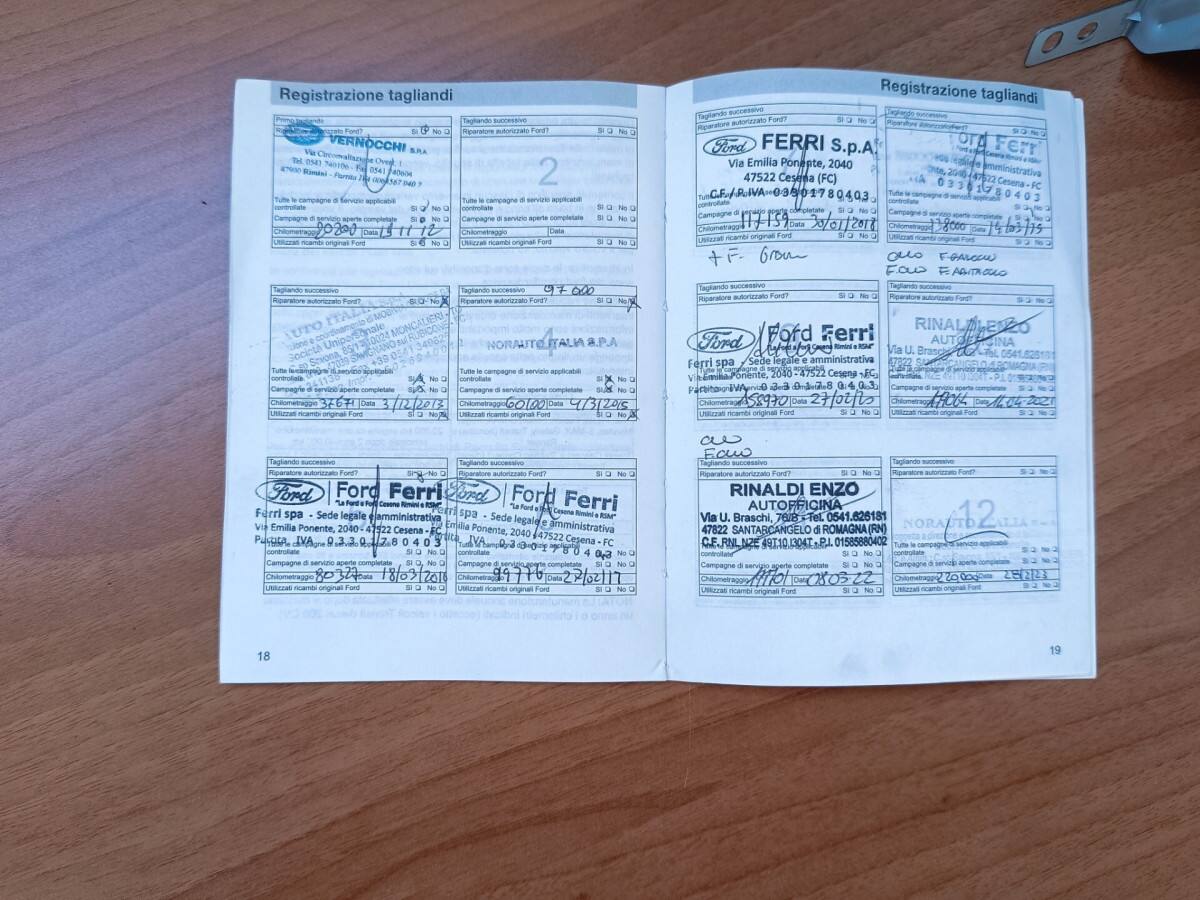 Registrazione tagliandi
Primo tagliando
Riparatore autorizzato Ford? Sì No
VERNOCCHI S.P.A.
Via Circonvallazione Ovest, 1
Tel. 0541 740106 - Fax 0541 740604
47900 Rimini - Partita IVA
Tutte le campagne di servizio applicabili
controllate Sì No
Campagne di servizio aperte completate Sì No
Chilometraggio Data
Utilizzati ricambi originali Ford Sì No
Tagliando successivo
Riparatore autorizzato Ford? Sì No
2
Tutte le campagne di servizio applicabili
controllate Sì No
Campagne di servizio aperte completate Sì No
Chilometraggio Data
Utilizzati ricambi originali Ford Sì No
Tagliando successivo
Riparatore autorizzato Ford? Sì No
AUTO ITALIA S.P.A.
Società Unipersonale
Tutte le campagne di servizio applicabili
controllate Sì No
Campagne di servizio aperte completate Sì No
Chilometraggio 37671 Data 3/12/2013
Utilizzati ricambi originali Ford Sì No
Tagliando successivo 97000
Riparatore autorizzato Ford? Sì No
4
NORAUTO ITALIA S.P.A
Tutte le campagne di servizio applicabili
controllate Sì No
Campagne di servizio aperte completate Sì No
Chilometraggio 60100 Data 4/3/2015
Utilizzati ricambi originali Ford Sì No
Tagliando successivo
Riparatore autorizzato Ford? Sì No
Ford Ford Ferri
"La Ford a Forlì Cesena Rimini e RSM"
Ferri spa - Sede legale e amministrativa
Via Emilia Ponente, 2040 - 47522 Cesena - FC
Partita IVA 03301780403
Campagne di servizio aperte completate Sì No
Chilometraggio 80327 Data 18/03/2016
Utilizzati ricambi originali Ford Sì No
Tagliando successivo
Riparatore autorizzato Ford? Sì No
Ford Ford Ferri
"La Ford a Forlì Cesena Rimini e RSM"
Ferri spa - Sede legale e amministrativa
Via Emilia Ponente, 2040 - 47522 Cesena - FC
Partita IVA 03301780403
controllate Sì No
Campagne di servizio aperte completate Sì No
Chilometraggio 99776 Data 27/02/17
Utilizzati ricambi originali Ford Sì No
18
Registrazione tagliandi
Tagliando successivo
Riparatore autorizzato Ford? Sì No
Ford FERRI S.p.A.
Via Emilia Ponente, 2040
47522 Cesena (FC)
C.F. / P. IVA 03301780403
Tutte le campagne di servizio applicabili
controllate Sì No
Campagne di servizio aperte completate Sì No
Chilometraggio 117159 Data 30/01/2018
Utilizzati ricambi originali Ford Sì No
Tagliando successivo
Riparatore autorizzato Ford? Sì No
Ford Ferri
Sede legale e amministrativa
2040 - 47522 Cesena - FC
IVA 03301780403
controllate Sì No
Campagne di servizio aperte completate Sì No
Chilometraggio 138000 Data
Utilizzati ricambi originali Ford Sì No
Tagliando successivo
Riparatore autorizzato Ford? Sì No
Ford Ford Ferri
"La Ford a Forlì Cesena Rimini e RSM"
Ferri spa - Sede legale e amministrativa
Via Emilia Ponente, 2040 - 47522 Cesena - FC
Partita IVA 03301780403
Campagne di servizio aperte completate Sì No
Chilometraggio 158970 Data 27/02/20
Utilizzati ricambi originali Ford Sì No
Tagliando successivo
Riparatore autorizzato Ford? Sì No
RINALDI ENZO
AUTOFFICINA
Via U. Braschi, 76/B - Tel. 0541.626181
47822 SANTARCANGELO di ROMAGNA (RN)
Campagne di servizio aperte completate Sì No
Chilometraggio Data 14.04.2021
Utilizzati ricambi originali Ford Sì No
Tagliando successivo
Riparatore autorizzato Ford? Sì No
RINALDI ENZO
AUTOFFICINA
Via U. Braschi, 76/B - Tel. 0541.626181
47822 SANTARCANGELO di ROMAGNA (RN)
C.F. RNL NZE 49T10 I304T - P.I. 01585880402
Tutte le campagne di servizio applicabili
controllate Sì No
Campagne di servizio aperte completate Sì No
Chilometraggio Data 08.03.22
Utilizzati ricambi originali Ford Sì No
Tagliando successivo
Riparatore autorizzato Ford? Sì No
12
NORAUTO ITALIA
Tutte le campagne di servizio applicabili
controllate Sì No
Campagne di servizio aperte completate Sì No
Chilometraggio 220000 Data
Utilizzati ricambi originali Ford Sì No
19